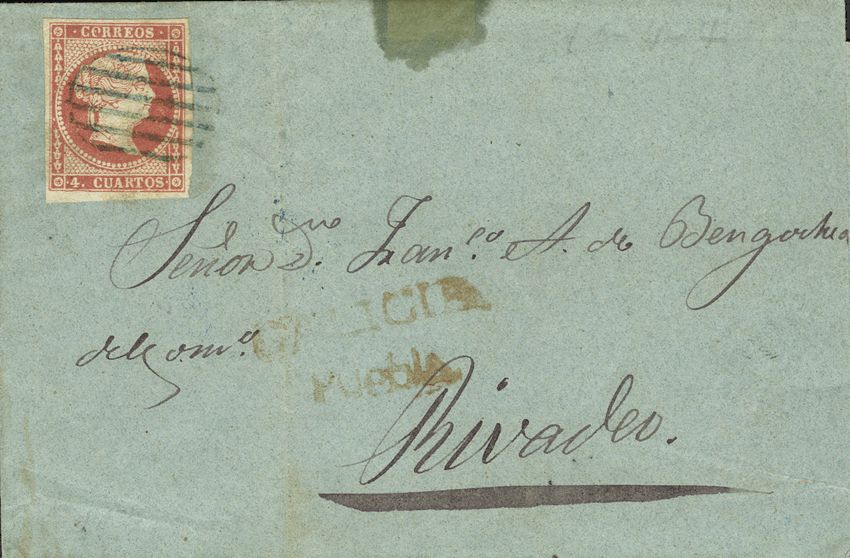 CORREOS
4. CUARTOS
Señor Dn. Franco. A. de Bengochea
del Come.
GALICIA
Puebla
Rivadeo.